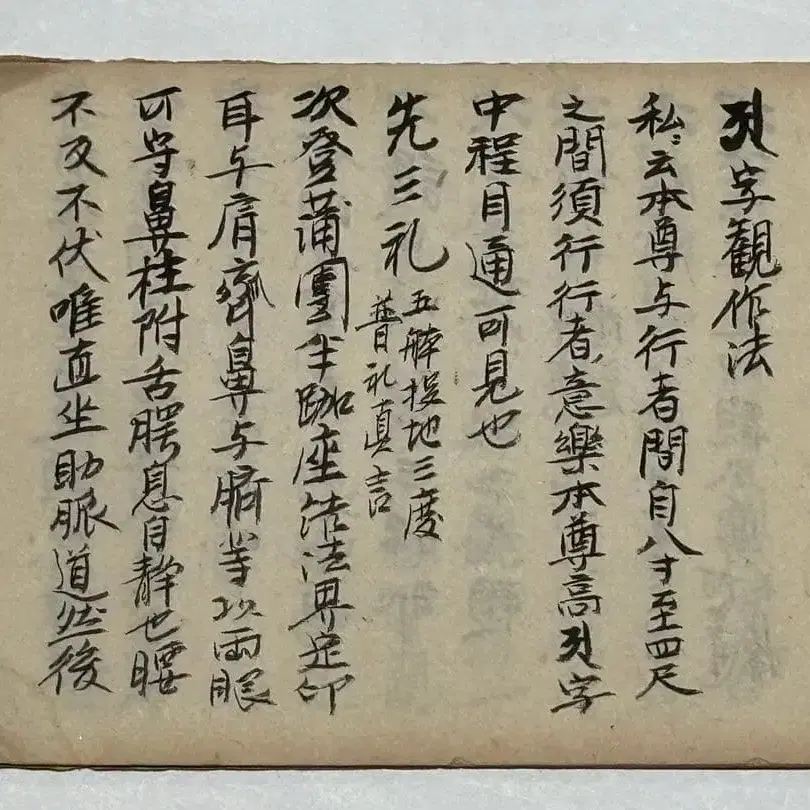 𑖀字観作法
私云本尊与行者間自八寸至四尺
之間須行行者意樂本尊高𑖀字
中程目通可見也
先三礼
五体投地三度
普礼真言
次登蒲團半跏座結法界定印
耳与肩齊鼻与臍等以両眼
可守鼻柱附舌腭息自静也腰
不反不伏唯直坐助脈道然後